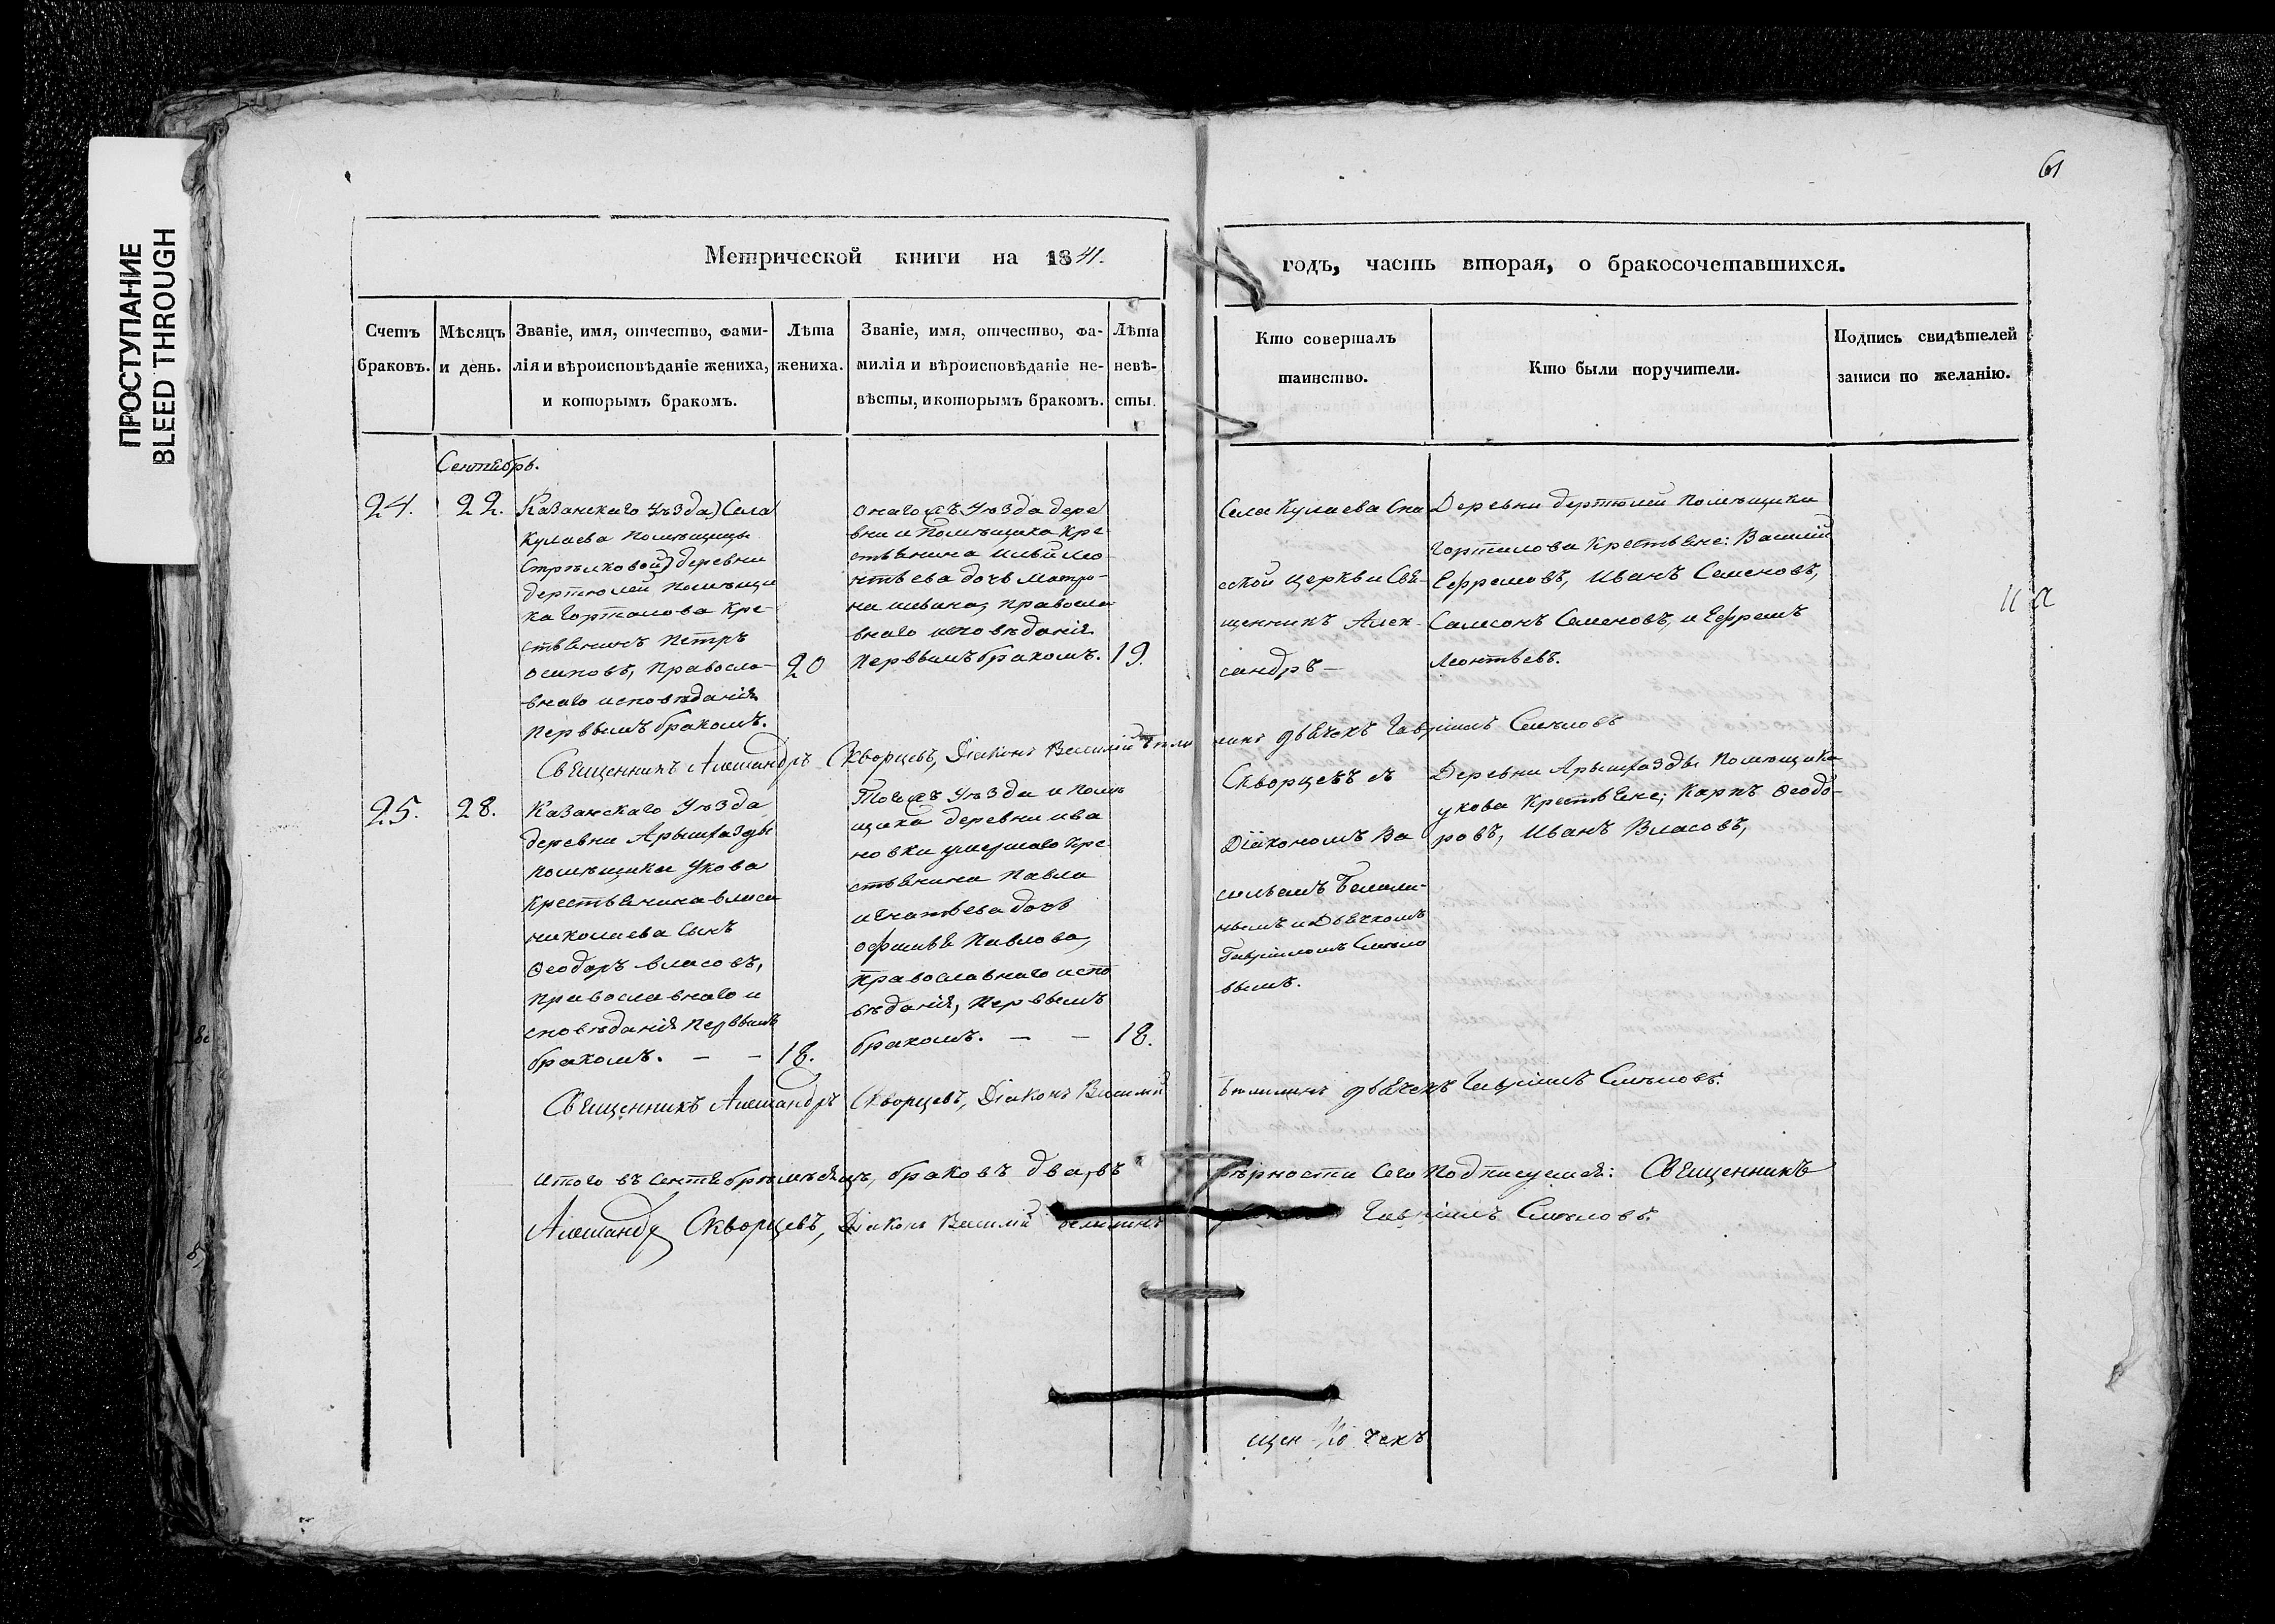 ПРОСТУПАНИЕ
BLEED THROUGH
61
Метрической книги на 1841.
годъ, часть вторая, о бракосочетавшихся.
Счетъ браковъ.
Мѣсяцъ и день.
Званіе, имя, отчество, фами-
лія и вѣроисповѣданіе жениха,
и которымъ бракомъ.
Лѣта
жениха.
Званіе, имя, отчество, фа-
милія и вѣроисповѣданіе не-
вѣсты, и которымъ бракомъ.
Лѣта
невѣ-
сты.
Кто совершалъ
таинство.
Кто были поручители.
Подпись свидѣтелей
записи по желанію.
Сентябрь.
24.
22.
Казанскаго Уѣзда) Села
Кулаева помѣщицы
Стрѣлковой) деревни
дертюлей помѣщи
ка Горталова Кре-
стьянинъ Петръ
Осиповъ, Правосла-
внаго исповѣданія
первымъ бракомъ.
20
онагожъ Уѣзда дере
вни и Помѣщика Кре
стьянина Ильи Лео
нтьева дочь Матро-
на Ильина, правосла
внаго исповѣданія
первымъ бракомъ.
19.
Села Кулаева Спа
ской церкви Свя-
щенникъ Алек-
сандръ —
Деревни дертюлей Помѣщика
Горталова Крестьяне: Василій
Ефремовъ, Иванъ Семеновъ,
Самсонъ Семеновъ, и Ефремъ
Леонтьевъ.
Священникъ Александръ Скворцовъ, Діаконъ Василій
дьячекъ Гавріилъ Смѣловъ
25.
28.
Казанскаго Уѣзда
деревни Арышхазды
помѣщика Укова
Крестьянина власа
николаева сынъ
Ѳеодоръ власовъ,
православнаго и
сповѣданія первымъ
бракомъ. — —
18.
Тогожъ Уѣзда и помѣ
щика деревни ива
новки умершаго Кре
стьянина Павла
игнатьева дочь
Офимья Павлова,
православнаго испо
вѣданія, первымъ
бракомъ. — —
18.
Скворцовъ съ
Діакономъ Ва
сильемъ
нымъ и Дьячкомъ
Гавріиломъ Смѣло
вымъ.
Деревни Арышхазды Помѣщика
укова Крестьяне; Карпъ Ѳеодо-
ровъ, Иванъ Власовъ,
Священникъ Александръ Скворцовъ, Діаконъ Василій
дьячекъ Гавріилъ Смѣловъ.
Итого въ сентябрѣ мѣсяцѣ, браковъ два, въ
вѣрности сего подписуемся: Священникъ
Александръ Скворцовъ, Діаконъ Василій
Гавріилъ Смѣловъ.
щен ко чекъ